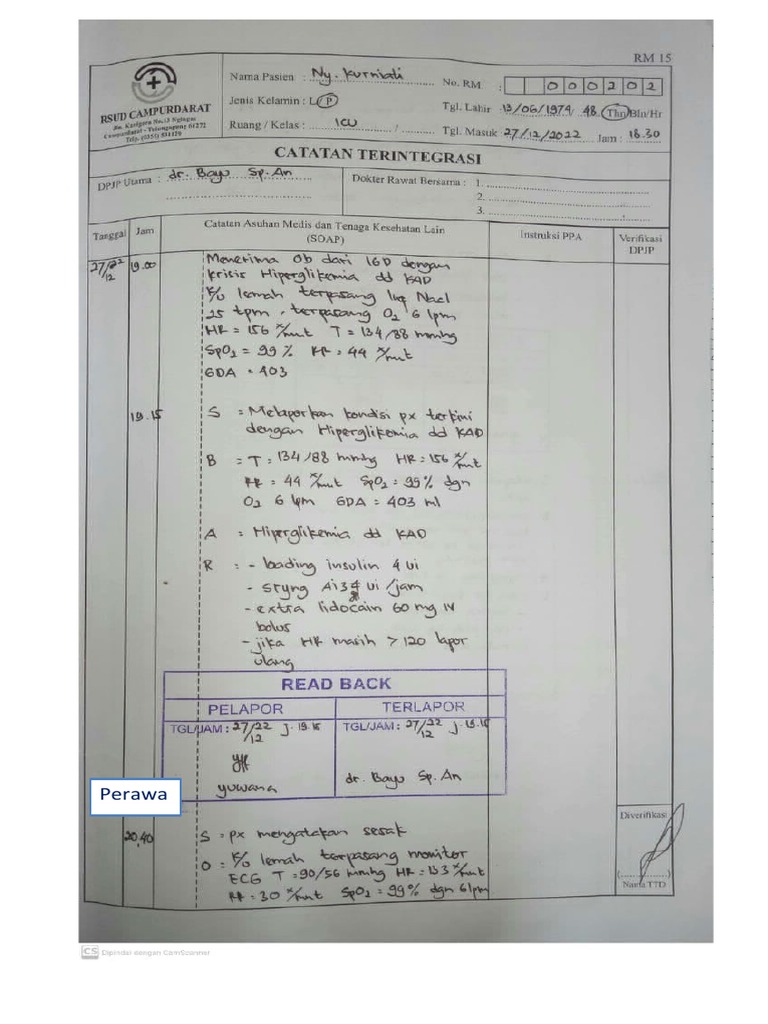 RM 15
RSUD CAMPURDARAT
Campurdarat - Tulungagung 61272
Nama Pasien : Ny. Kurniati
Jenis Kelamin : L/P
Ruang / Kelas : ICU /
No. RM : 000202
Tgl. Lahir 13/06/1974 48 Thn/Bln/Hr
Tgl. Masuk 27/12/2022 Jam : 18.30
CATATAN TERINTEGRASI
DPJP Utama : dr. Bayu Sp. An
Dokter Rawat Bersama : 1.
2.
3.
Tanggal
Jam
Catatan Asuhan Medis dan Tenaga Kesehatan Lain
(SOAP)
Instruksi PPA
Verifikasi
DPJP
27/22
12
19.00
Menerima Ob dari IGD dengan
krisis Hiperglikemia dd KAD
K/u lemah terpasang Nacl
25 tpm, terpasang O2 6 lpm
HR = 156 x/mnt T = 134/88 mmHg
SpO2 = 99 % RR = 44 x/mnt
GDA = 403
19.15
S = Melaporkan kondisi px terkini
dengan Hiperglikemia dd KAD
B = T = 134/88 mmHg HR = 156 x/mnt
RR = 44 x/mnt SpO2 = 99% dgn
O2 6 lpm GDA = 403 ml
A = Hiperglikemia dd KAD
R = - loading insulin 4 ui
- ui/jam
- extra lidocain 60 mg IV
bolus
- jika HR masih > 120 lapor
ulang
READ BACK
PELAPOR
TERLAPOR
TGL/JAM : 27/22 j. 19.15
12
TGL/JAM : 27/22 j. 19.15
12
yuwana
dr. Bayu Sp. An
Perawa
20.40
S = px mengatakan sesak
O = K/u lemah terpasang monitor
ECG T = 90/56 mmHg HR = 153 x/mnt
RR : 30 x/mnt SpO2 = 99% dgn 6 lpm
Diverifikasi
(..............)
Nama TTD
CS Dipindai dengan CamScanner